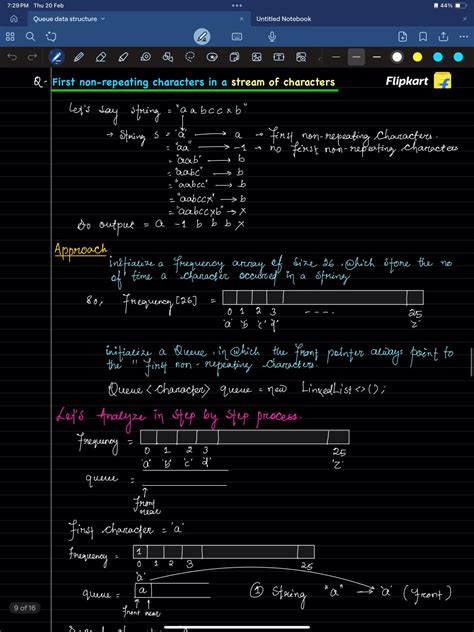 7:29 PM Thu 20 Feb
44%
Queue data structure
Untitled Notebook
Q- First non-repeating characters in a stream of characters
Flipkart
Let's say string = "aabccxb"
→ String s = 'a' → a → first non-repeating characters.
= 'aa' → -1 → no first non-repeating characters
= 'aab' → b
= 'aabc' → b
= 'aabcc' → b
= "aabccx" → b
= "aabccxb" → x
So output = a -1 b b b x
Approach
initialize a frequency array of size 26, which store the no
of time a character occured in a string
so, frequency[26] =
0 1 2 3 ---- 25
'a' 'b' 'c' 'd' 'z'
initialize a Queue, in which the front pointer always point to
the "first non-repeating characters.
Queue<character> queue = new LinkedList<>();
Let's Analyze in step by step process.
frequency =
0 1 2 3 25
'a' 'b' 'c' 'd' 'z'
queue =
front
rear
first character = 'a'
frequency = 1
0 1 2 3 25
'a'
queue = a
① String "a" → 'a' (front)
front rear
9 of 16